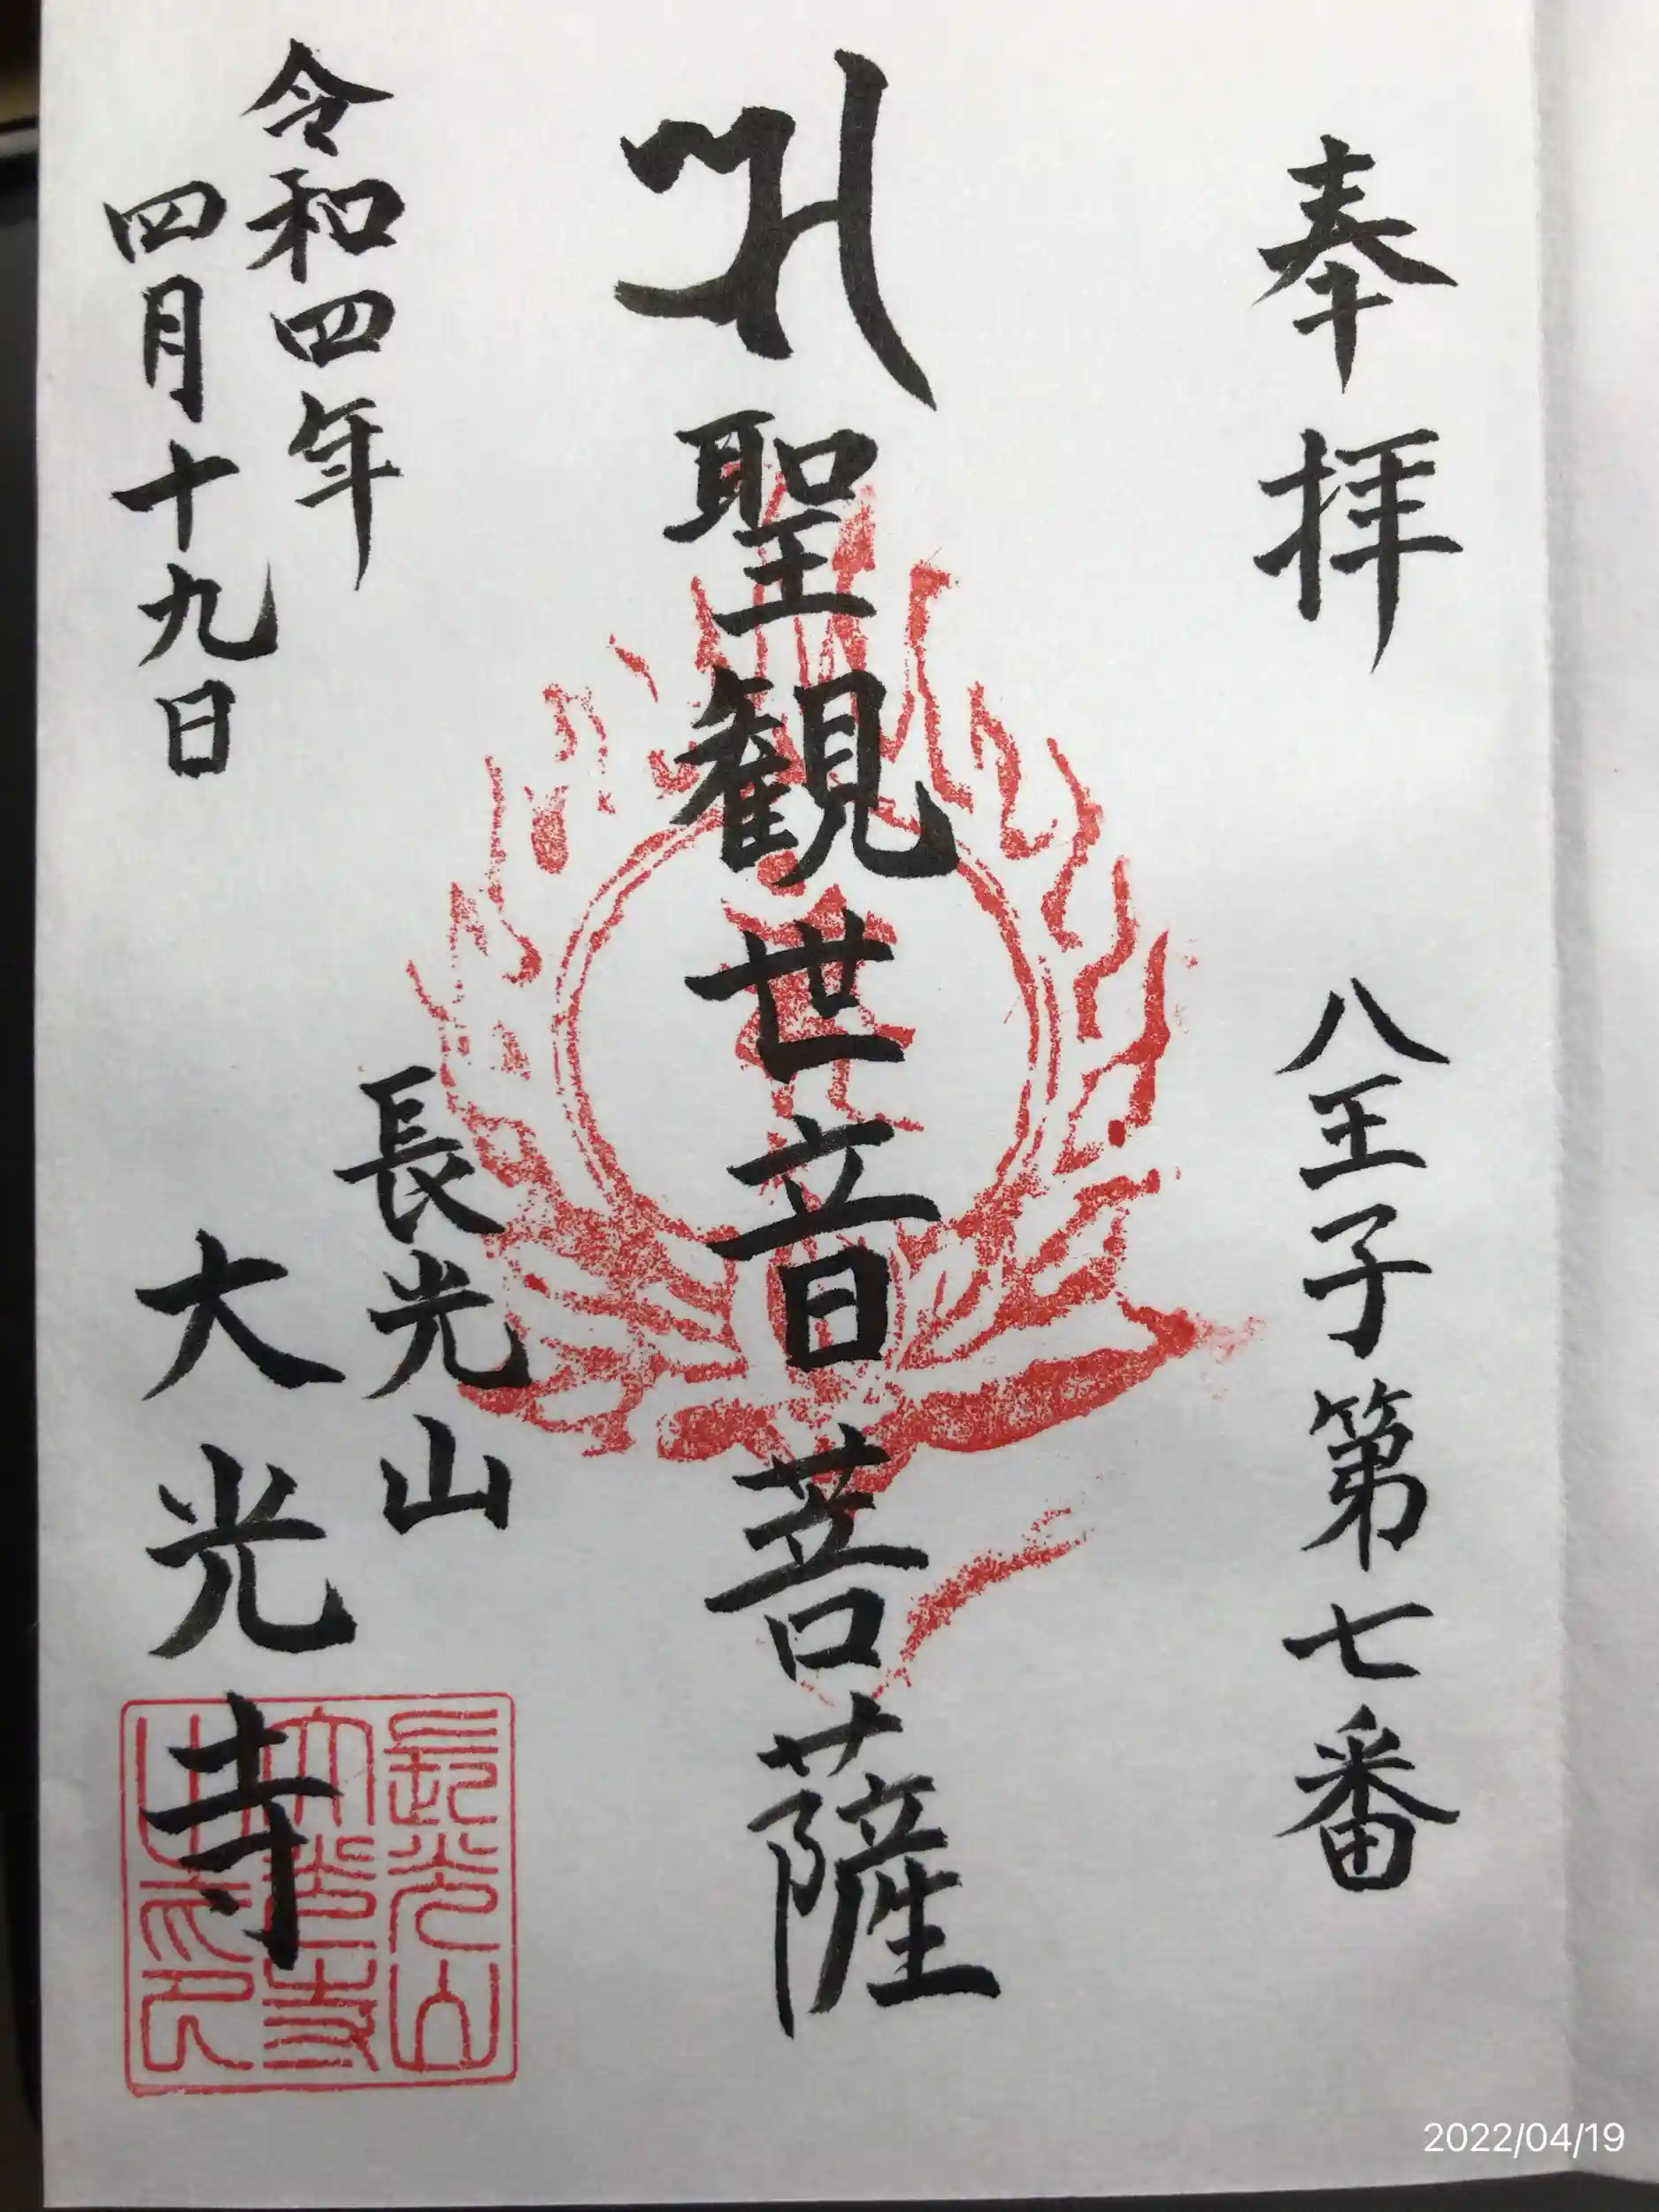 奉拝
八王子第七番
聖観世音菩薩
令和四年
四月十九日
長光山
大光寺
長光山
大光寺
之印
2022/04/19